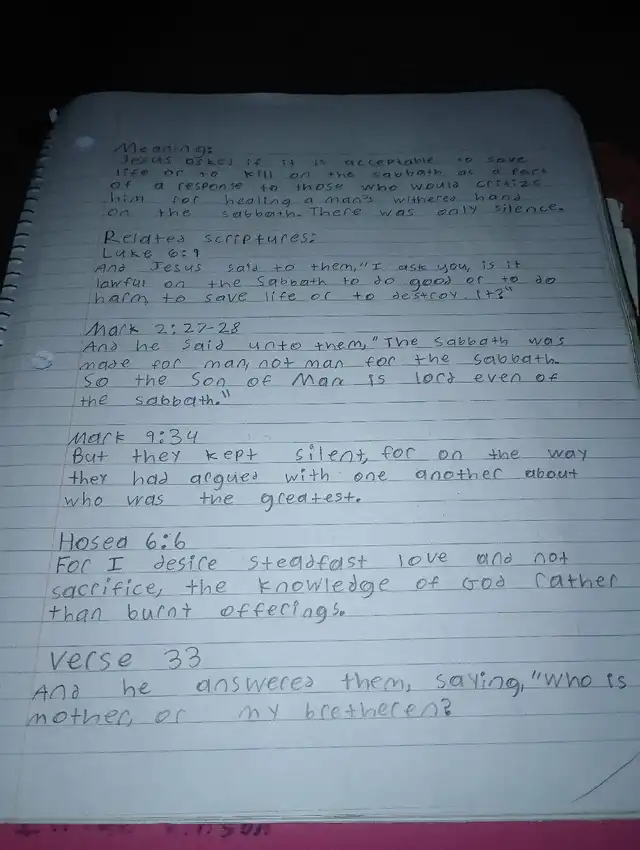 Meaning:
Jesus askes if it is acceptable to save
life or to kill on the sabbath as a part
of a response to those who would critize
him for healing a man's withered hand
on the sabbath. There was only silence.
Related scriptures:
Luke 6:9
And Jesus said to them, "I ask you, is it
lawful on the Sabbath to do good or to do
harm, to save life or to destroy it?"
Mark 2:27-28
And he said unto them, "The Sabbath was
made for man, not man for the sabbath.
So the Son of Man is lord even of
the sabbath."
Mark 9:34
But they kept silent, for on the way
they had argued with one another about
who was the greatest.
Hosea 6:6
For I desire steadfast love and not
sacrifice, the knowledge of God rather
than burnt offerings.
Verse 33
And he answered them, saying, "Who is
mother, or my bretheren?